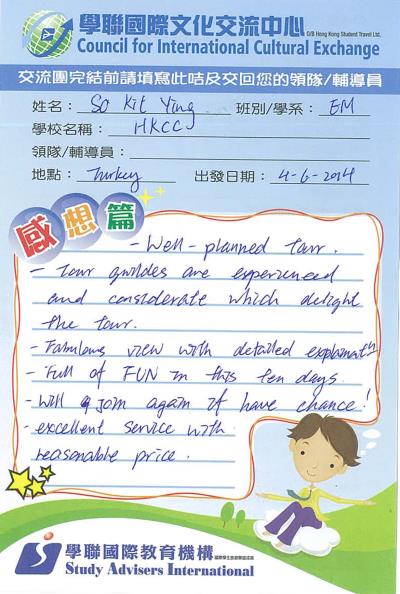 學聯國際文化交流中心
O/B Hong Kong Student Travel Ltd.
Council for International Cultural Exchange
交流團完結前請填寫此咭及交回您的領隊/輔導員
姓名：So Kit Ying 班別/學系：EM
學校名稱：HKCC
領隊/輔導員：
地點：Turkey 出發日期：4-6-2014
感想篇
- Well-planned tour.
- Tour guildes are experienced
and considerate which delight
the tour.
- Fabulous view with detailed explanatn
- Full of FUN in this ten days.
- Will join again if have chance!
- excellent service with
reasonable price.
學聯國際教育機構
Study Advisers International